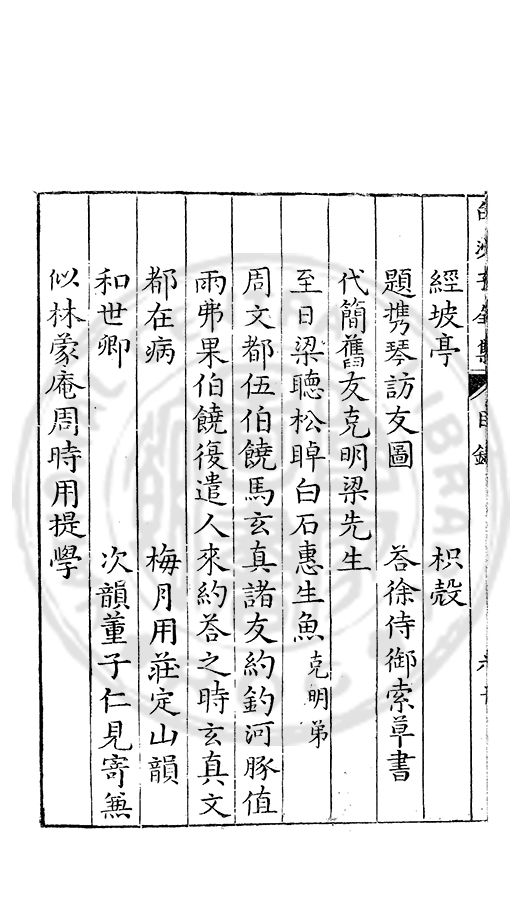 經坡亭 枳殼
題携琴訪友圖 荅徐侍御索草書
代簡舊友克明梁先生
至日梁聽松晫白石惠生魚克明弟
周文都伍伯饒馬玄真諸友約釣河豚值
雨弗果伯饒復遣人來約荅之時玄真文
都在病 梅月用莊定山韻
和世卿 次韻董子仁見寄兼
似林蒙庵周時用提學